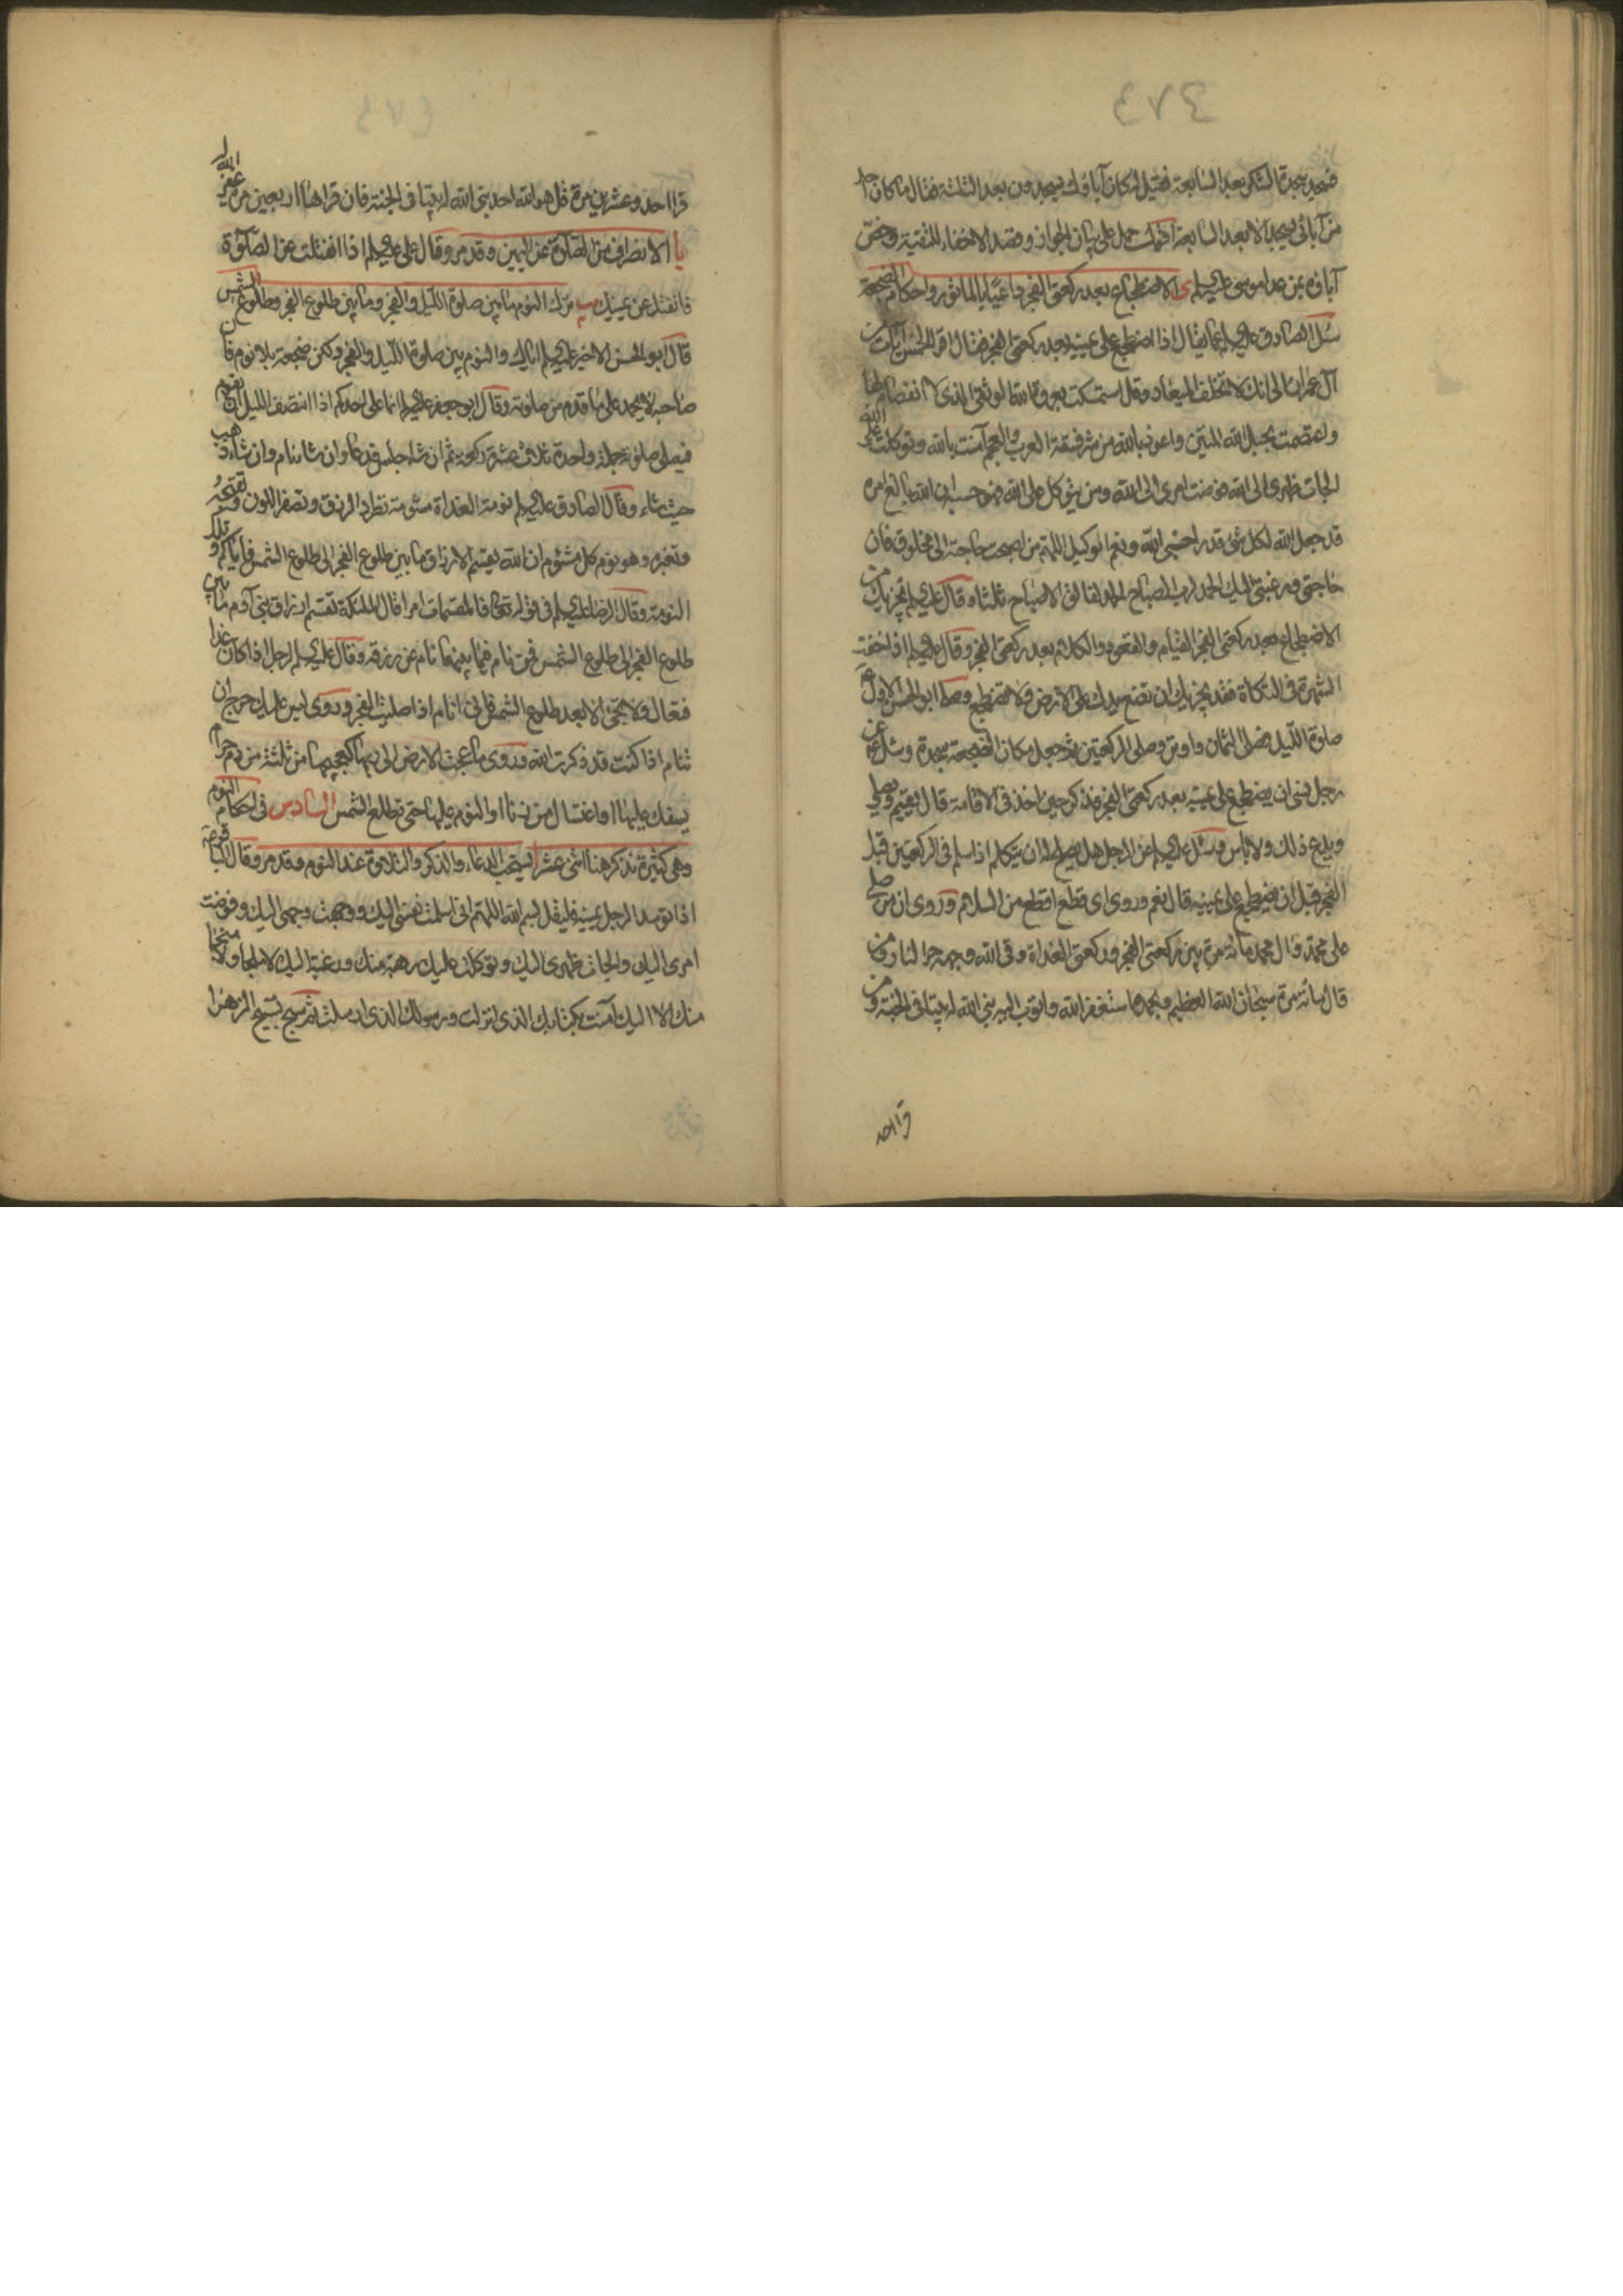 فسجد سجدة الشكر بعد السابعة فقيل له كان آباؤك يسجدون بعد الثلثة فقال ما كان احد
من آبائى يسجد الا بعد السابعة حمل على بيان الجواز وقصد الاخفاء للتقية وخص
آباؤه بمن عدا موسى عليه السلم ى الاضطجاع بعد ركعتى الفجر داعيا بالماثور واحكام الضجعة
سئل الصادق عليه السلم عما يقال اذا اضطجع على يمينه بعد ركعتى الفجر فقال اقرا الخمس آيات من
آل عمران الى انك لا تخلف الميعاد وقل استمسكت بعروة الله الوثقى الذى لا انفصام لها
واعتصمت بحبل الله المتين واعوذ بالله من شر فسقة العرب والعجم آمنت بالله وتوكلت على الله
الجات ظهرى الى الله فوضت امرى الى الله ومن يتوكل على الله فهو حسبه ان الله بالغ امره
قد جعل الله لكل شئ قدرا حسبى الله ونعم الوكيل اللهم من اصبحت حاجته الى مخلوق فان
حاجتى ورغبتى اليك الحمد لرب الصباح الحمد لفالق الاصباح ثلثا وقال عليه السلم يجزيك من
الاضطجاع بعد ركعتى الفجر القيام والقعود والكلام بعد ركعتى الفجر وقال عليه السلم اذا خفت
الشهرة فى التكاة فقد يجزيك ان تضع يدك على الارض ولا تضطجع وصلى ابو الحسن الاول ع
صلوة الليل فصلى الثمان واوتر وصلى الركعتين ثم جعل مكان الضجعة سجدة وسئل ع عن
رجل نسى ان يضطجع على يمينه بعد ركعتى الفجر فذكر حين اخذ فى الاقامة قال يقيم ويصلى
ويدع ذلك ولا باس وسئل عليه السلم عن الرجل هل يصلح له ان يتكلم اذا سلم فى الركعتين قبل
الفجر قبل ان يضطجع على يمينه قال نعم وروى اى قطع اقطع من السلام وروى ان من صلى
على محمد وآل محمد مائة مرة بين ركعتى الفجر وركعتى الغداة وقى الله وجهه حر النار ومن
قال مائة مرة سبحان الله العظيم وبحمده استغفر الله واتوب اليه بنى الله له بيتا فى الجنة ومن
قرا احد
قرا احد وعشرين مرة قل هو الله احد بنى الله له بيتا فى الجنة فان قراها اربعين مرة غفر الله له
يا الانصراف من الصلوة عن اليمين وقد مر وقال على عليه السلم اذا انفتلت عن الصلوة
فانفتل عن يمينك يب ترك النوم ما بين صلوة الليل والفجر وما بين طلوع الفجر وطلوع الشمس
قال ابو الحسن الاخير عليه السلم اياك والنوم بين صلوة الليل والفجر ولكن ضجعة بلا نوم فان
صاحبه لا يحمد على ما قدم من صلوته وقال ابو جعفر عليه السلم انما على احدكم اذا انتصف الليل ان يقوم
فيصلى صلوته جملة واحدة ثلاث عشرة ركعة ثم ان شاء جلس فدعا وان شاء نام وان شاء ذهب
حيث شاء وقال الصادق عليه السلم نومة الغداة مشومة تطرد الرزق وتصفر اللون وتقبحه
وتغيره وهو نوم كل مشئوم ان الله يقسم الارزاق ما بين طلوع الفجر الى طلوع الشمس فاياكم وتلك
النومة وقال الرضا عليه السلم فى قوله تعالى فالمقسمات امرا قال الملئكة تقسم ارزاق بنى آدم ما بين
طلوع الفجر الى طلوع الشمس فمن نام فيما بينهما نام عن رزقه وقال عليه السلم لرجل اذا كان غدا
فتعال ولا تجئ الا بعد طلوع الشمس فانى انام اذا صليت الفجر وروى ليس عليك حرج ان
تنام اذا كنت قد ذكرت الله وروى ما عجت الارض الى ربها كعجيجها من ثلثة من دم حرام
يسفك عليها او اغتسال من زنا او النوم عليها حتى تطلع الشمس السادس فى احكام النوم
وهى كثيرة نذكر هنا اثنى عشر ا يستحب الدعاء والذكر والتلاوة عند النوم وقد مر وقال
اذا توسد الرجل يمينه فليقل بسم الله اللهم انى اسلمت نفسى اليك ووجهت وجهى اليك وفوضت
امرى اليك والجات ظهرى اليك وتوكلت عليك رهبة منك ورغبة اليك لا ملجا ولا منجا
منك الا اليك آمنت بكتابك الذى انزلت ورسولك الذى ارسلت ثم يسبح تسبيح الزهرا